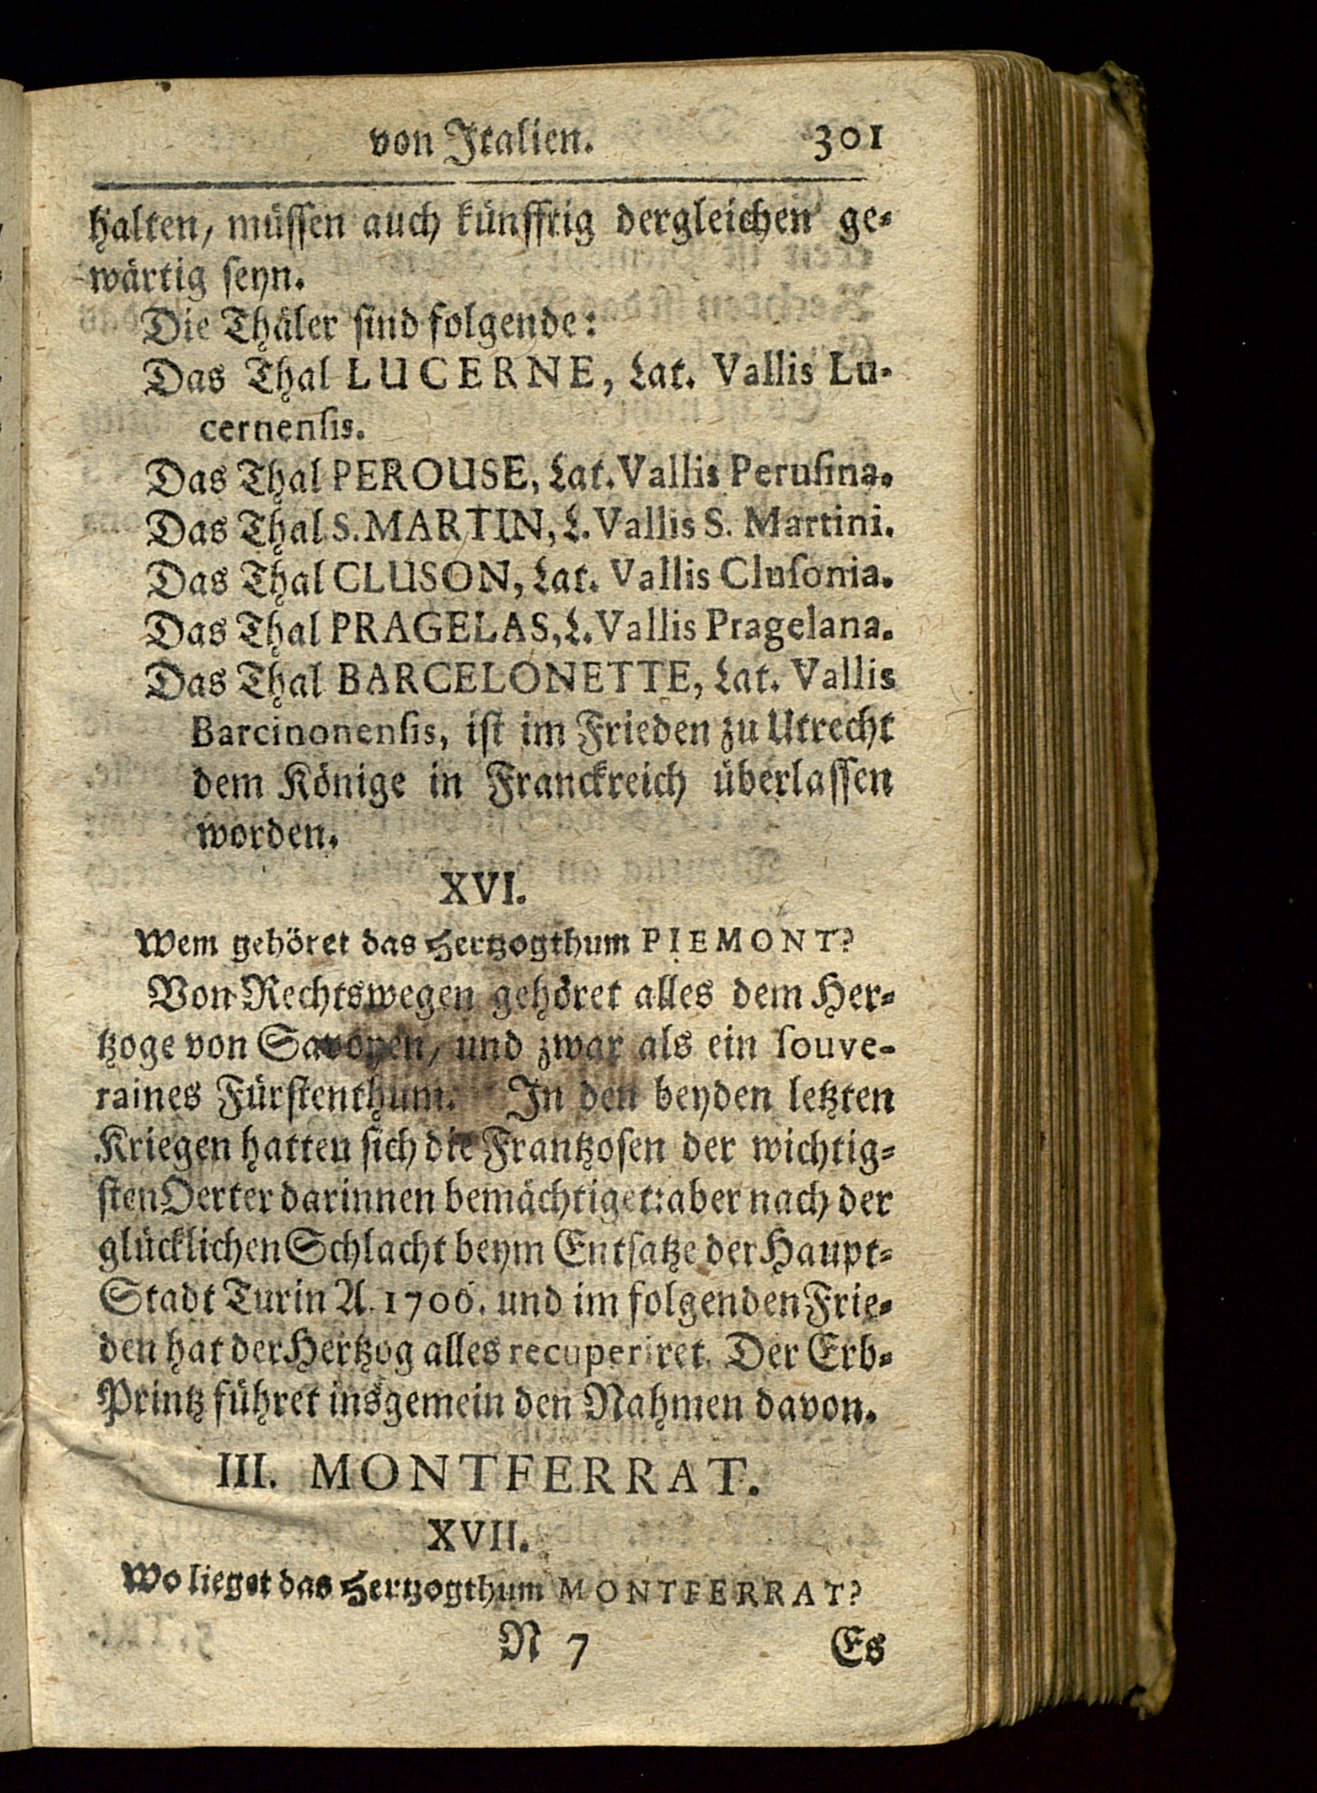 von Italien. 301
halten, müssen auch künfftig dergleichen ge-
wärtig seyn.
Die Thäler sind folgende:
Das Thal LUCERNE, Lat. Vallis Lu-
cernensis.
Das Thal PEROUSE, Lat. Vallis Perusina.
Das Thal S. MARTIN, L. Vallis S. Martini.
Das Thal CLUSON, Lat. Vallis Clusonia.
Das Thal PRAGELAS, L. Vallis Pragelana.
Das Thal BARCELONETTE, Lat. Vallis
Barcinonensis, ist im Frieden zu Utrecht
dem Könige in Franckreich überlassen
worden.
XVI.
Wem gehöret das Hertzogthum PIEMONT?
Von Rechtswegen gehöret alles dem Her-
tzoge von Savoyen, und zwar als ein souve-
raines Fürstenthum. In den beyden letzten
Kriegen hatten sich die Frantzosen der wichtig-
sten Oerter darinnen bemächtiget: aber nach der
glücklichen Schlacht beym Entsatze der Haupt-
Stadt Turin A. 1706. und im folgenden Frie-
den hat der Hertzog alles recuperiret. Der Erb-
Printz führet insgemein den Nahmen davon.
III. MONTFERRAT.
XVII.
Wo lieget das Hertzogthum MONTFERRAT?
N 7 Es